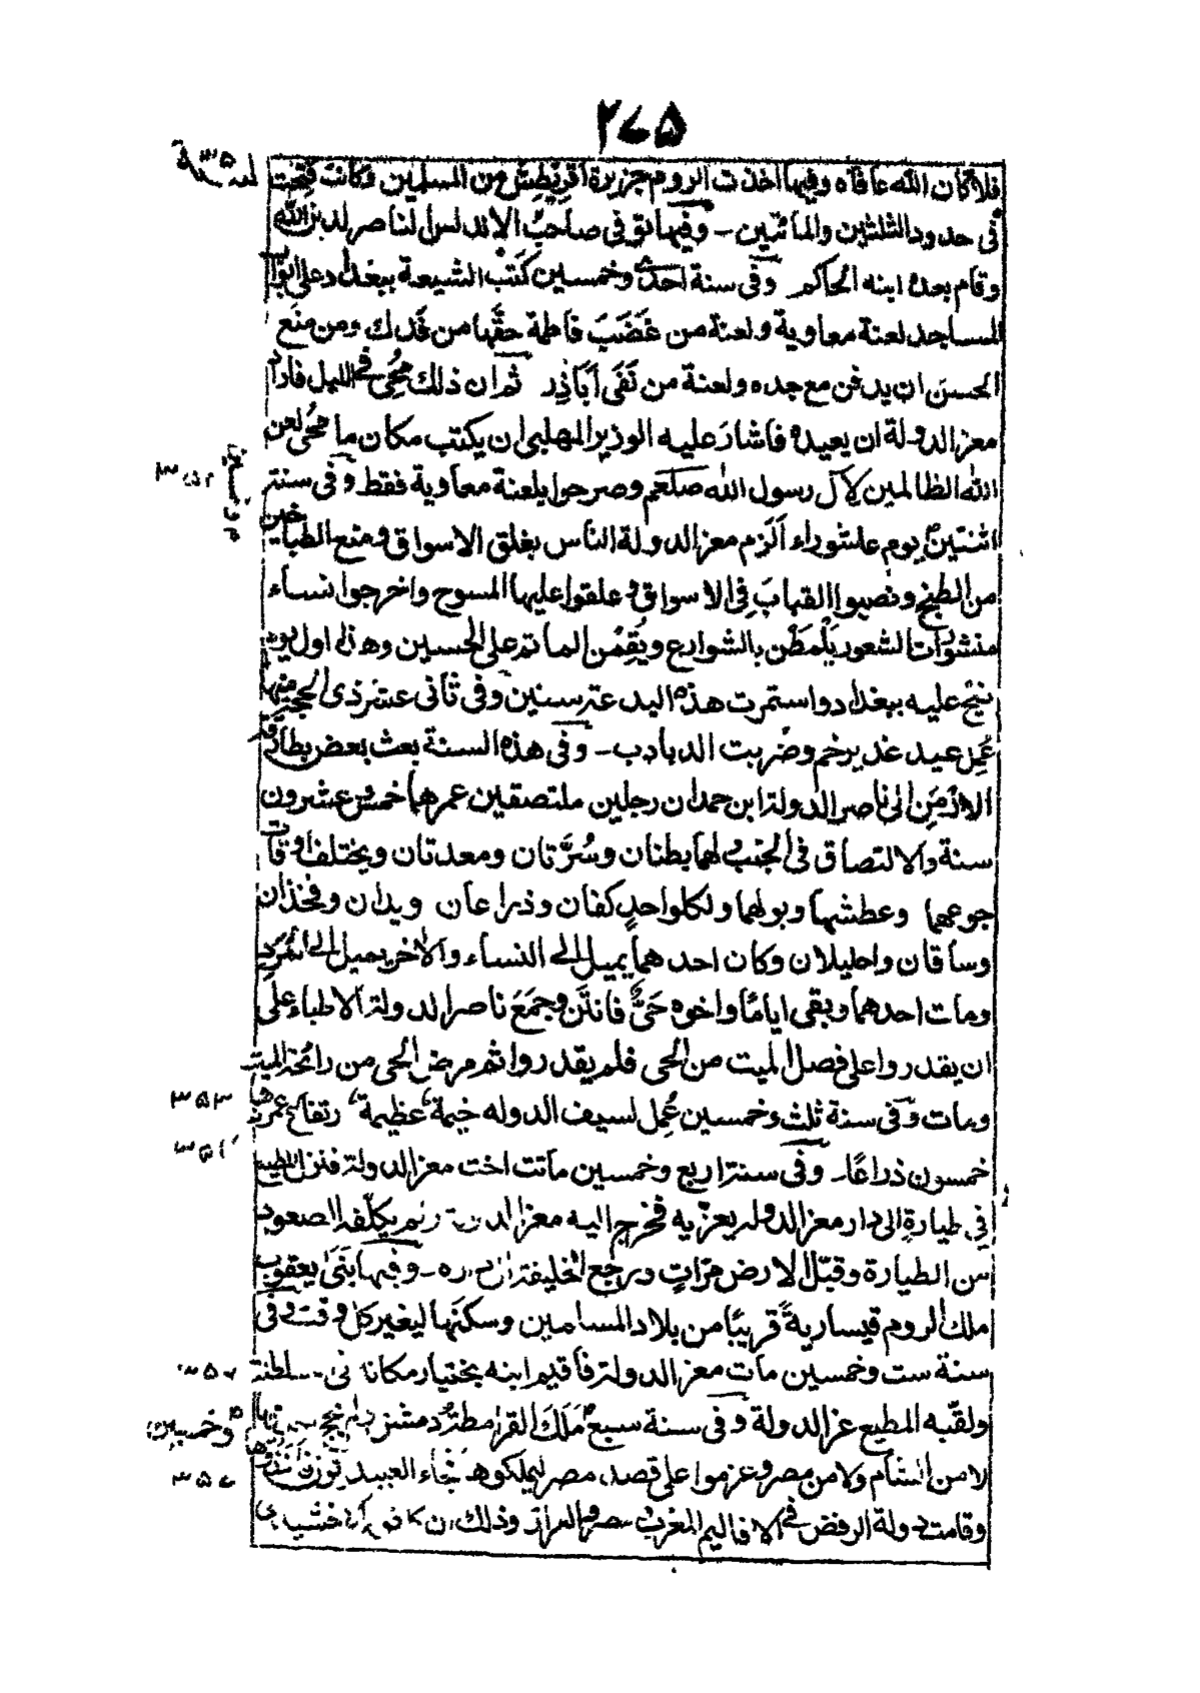 ۲۷۵
فلا كان الله عافاه وفيها اخذت الروم جزيرة اقريطش من المسلمين وكانت فتحت
فى حدود الثلثين والمائتين ـ وفيها توفى صاحب الاندلس الناصر لدين الله
وقام بعده ابنه الحاكم وفى سنة احدى وخمسين كتب الشيعة ببغداد على ابواب
المساجد لعنة معاوية ولعنة من غضب فاطمة حقها من فدك ومن منع
الحسن ان يدفن مع جده ولعنة من نفى اباذر ثم ان ذلك محى فى الليل فاراد
معز الدولة ان يعيده فاشار عليه الوزير المهلبى ان يكتب مكان ما محى لعن
الله الظالمين لآل رسول الله صلعم وصرحوا بلعنة معاوية فقط وفى سنة
اثنتين يوم عاشوراء الزم معز الدولة الناس بغلق الاسواق ومنع الطباخين
من الطبخ ونصبوا القباب فى الاسواق وعلقوا عليها المسوح واخرجوا نساء
منشورات الشعور يلطمن بالشوارع ويقمن الماتم على الحسين وهذا اول يوم
نيح عليه ببغداد واستمرت هذه البدعة سنين وفى ثانى عشر ذى الحجة منها
عمل عيد غدير خم وضربت الدبادب ـ وفى هذه السنة بعث بعض بطارقة
الارمن الى ناصر الدولة ابن حمدان رجلين ملتصقين عمرهما خمس وعشرون
سنة والالتصاق فى الجنب ولهما بطنان وسرتان ومعدتان ويختلف اوقات
جوعهما وعطشهما وبولهما ولكل واحد كفان وذراعان ويدان وفخذان
وساقان واحليلان وكان احدهما يميل الى النساء والآخر يميل الى المرد
ومات احدهما وبقى اياما واخوه حى فانتن وجمع ناصر الدولة الاطباء على
ان يقدروا على فصل الميت من الحى فلم يقدروا ثم مرض الحى من رائحة الميت
ومات وفى سنة ثلث وخمسين عمل لسيف الدوله خيمة عظيمة ارتفاع عمودها
خمسون ذراعا ـ وفى سنة اربع وخمسين ماتت اخت معز الدولة فنزل المطيع
فى طيارة الى دار معز الدولة يعزيه فخرج اليه معز الدولة ولم يكلفه الصعود
من الطيارة وقبل الارض مرات ورجع الخليفة الى داره ـ وفيها بنى يعقوب
ملك الروم قيسارية قريبا من بلاد المسلمين وسكنها ليغير كل وقت وفى
سنة ست وخمسين مات معز الدولة فاقيم ابنه بختيار مكانه فى السلطنة
ولقبه المطيع عز الدولة وفى سنة سبع ملك القرامطة دمشق ولم يحج فيها
لا من الشام ولا من مصر وعزموا على قصد مصر ليملكوها فجاء العبيديون فاخذوها
وقامت دولة الرفض فى الاقاليم المغرب ومصر والعراق وذلك ان كافور الاخشيدى
۳۵۳
وخمسين
۳۵۷